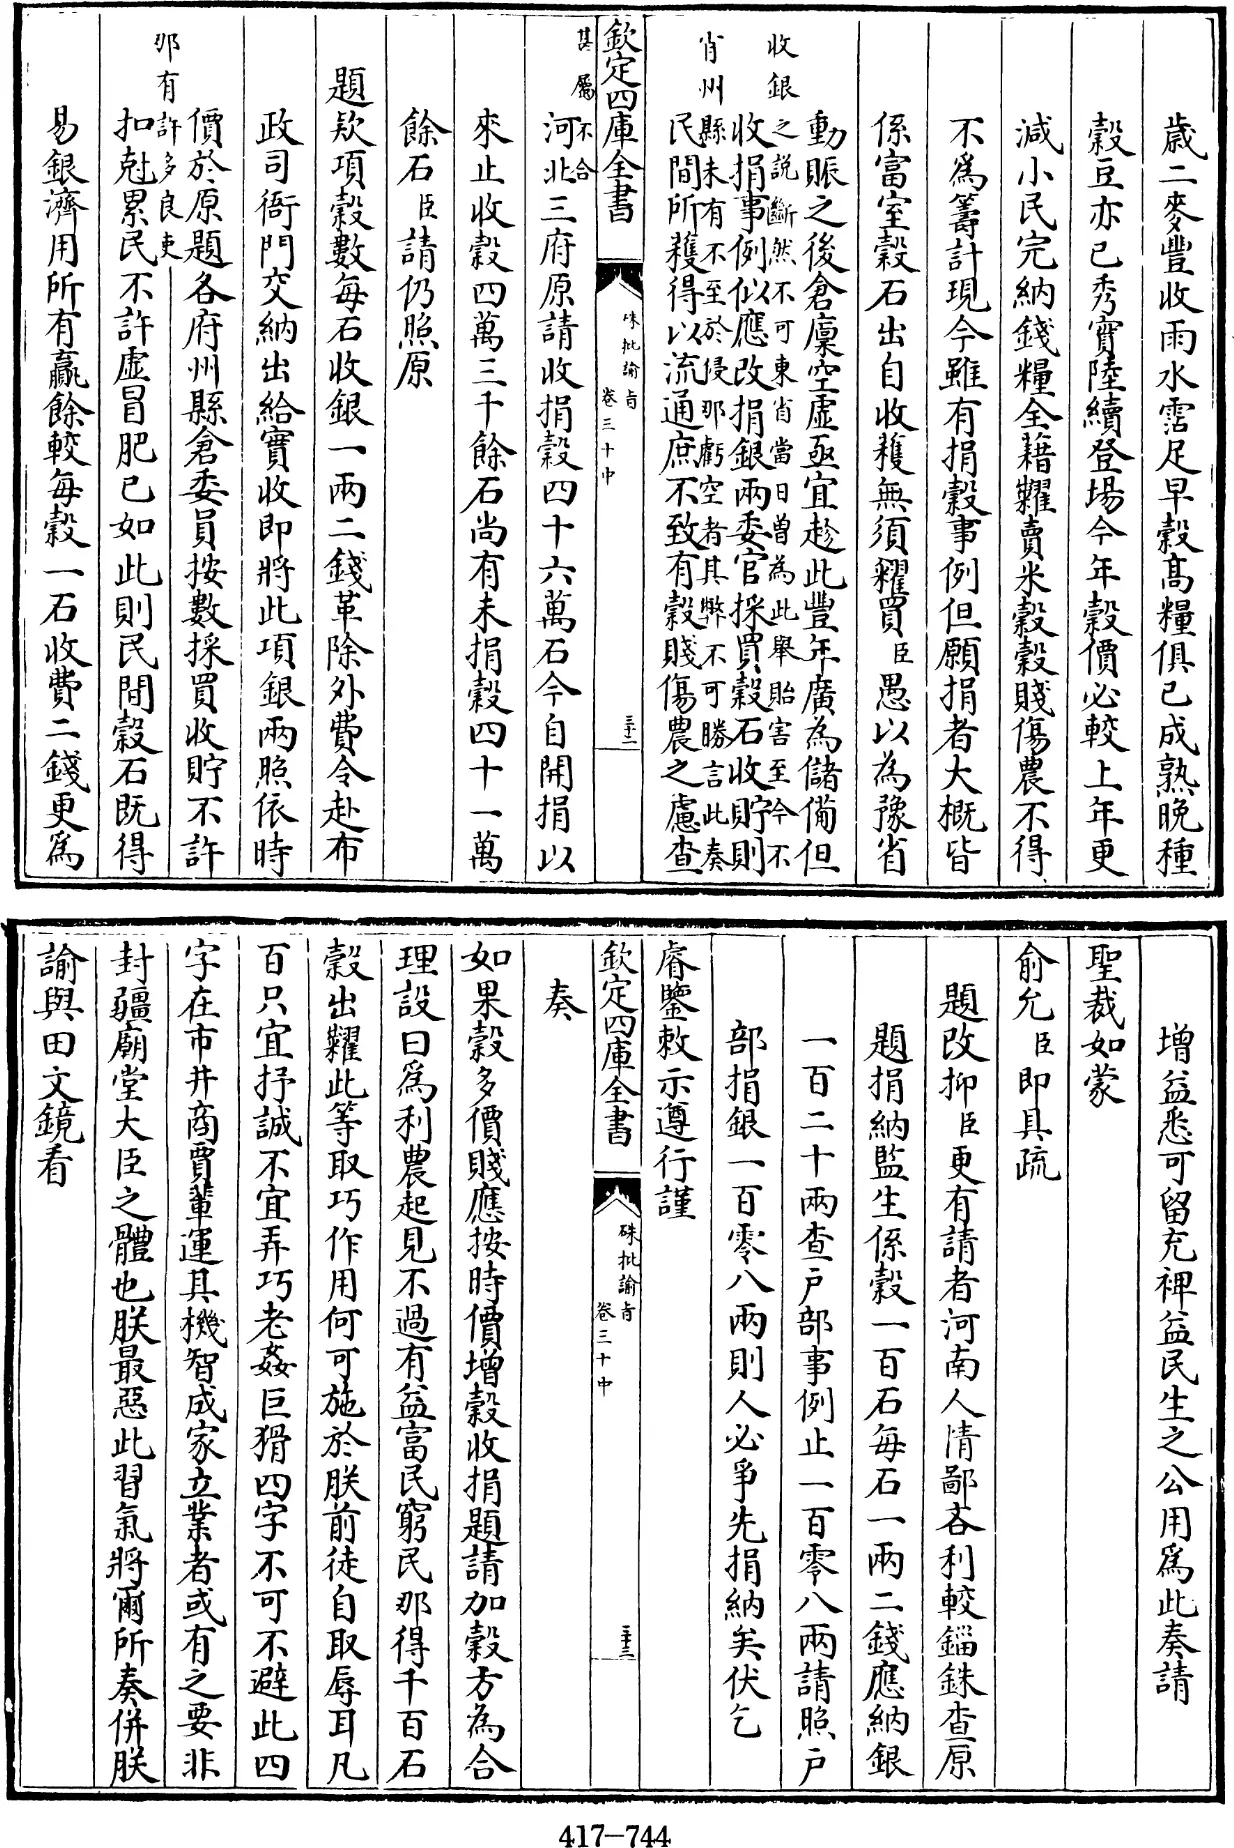 歳二麥豐收雨水霑足早穀髙糧俱已成熟晚種
穀豆亦已秀實陸續登場今年穀價必較上年更
減小民完納錢糧全藉糶賣米穀穀賤傷農不得
不爲籌計現今雖有捐穀事例但願捐者大概皆
係富室穀石出自收穫無須糴買臣愚以為豫省
動賑之後倉廩空虛亟宜趁此豐年廣為儲備但
收銀之說斷然不可東省當日曾為此舉貽害至今不
收捐事例似應改捐銀兩委官採買穀石收貯則
肯州縣未有不至於侵那虧空者其弊不可勝言此奏
民間所獲得以流通庶不致有穀賤傷農之慮查
欽定四庫全書
硃批諭旨
卷三十中
三十二
甚屬不合
河北三府原請收捐穀四十六萬石今自開捐以
來止收穀四萬三千餘石尚有未捐穀四十一萬
餘石臣請仍照原
題欵項穀數每石收銀一兩二錢革除外費令赴布
政司衙門交納出給實收即將此項銀兩照依時
價於原題各府州縣倉委員按數採買收貯不許
那有許多良吏
扣尅累民不許虛冒肥已如此則民間穀石既得
易銀濟用所有贏餘較每穀一石收費二錢更爲
增益悉可留充裨益民生之公用爲此奏請
聖裁如蒙
俞允臣即具疏
題改抑臣更有請者河南人情鄙吝利較錙銖查原
題捐納監生係穀一百石每石一兩二錢應納銀
一百二十兩查戶部事例止一百零八兩請照戶
部捐銀一百零八兩則人必爭先捐納矣伏乞
睿鑒敕示遵行謹
欽定四庫全書
硃批諭旨
卷三十中
三十三
奏
如果穀多價賤應按時價增穀收捐題請加穀方為合
理設曰爲利農起見不過有益富民窮民那得千百石
穀出糶此等取巧作用何可施於朕前徒自取辱耳凡
百只宜抒誠不宜弄巧老姦巨猾四字不可不避此四
字在市井商賈輩運其機智成家立業者或有之要非
封疆廟堂大臣之體也朕最惡此習氣將爾所奏併朕
諭與田文鏡看
417-744